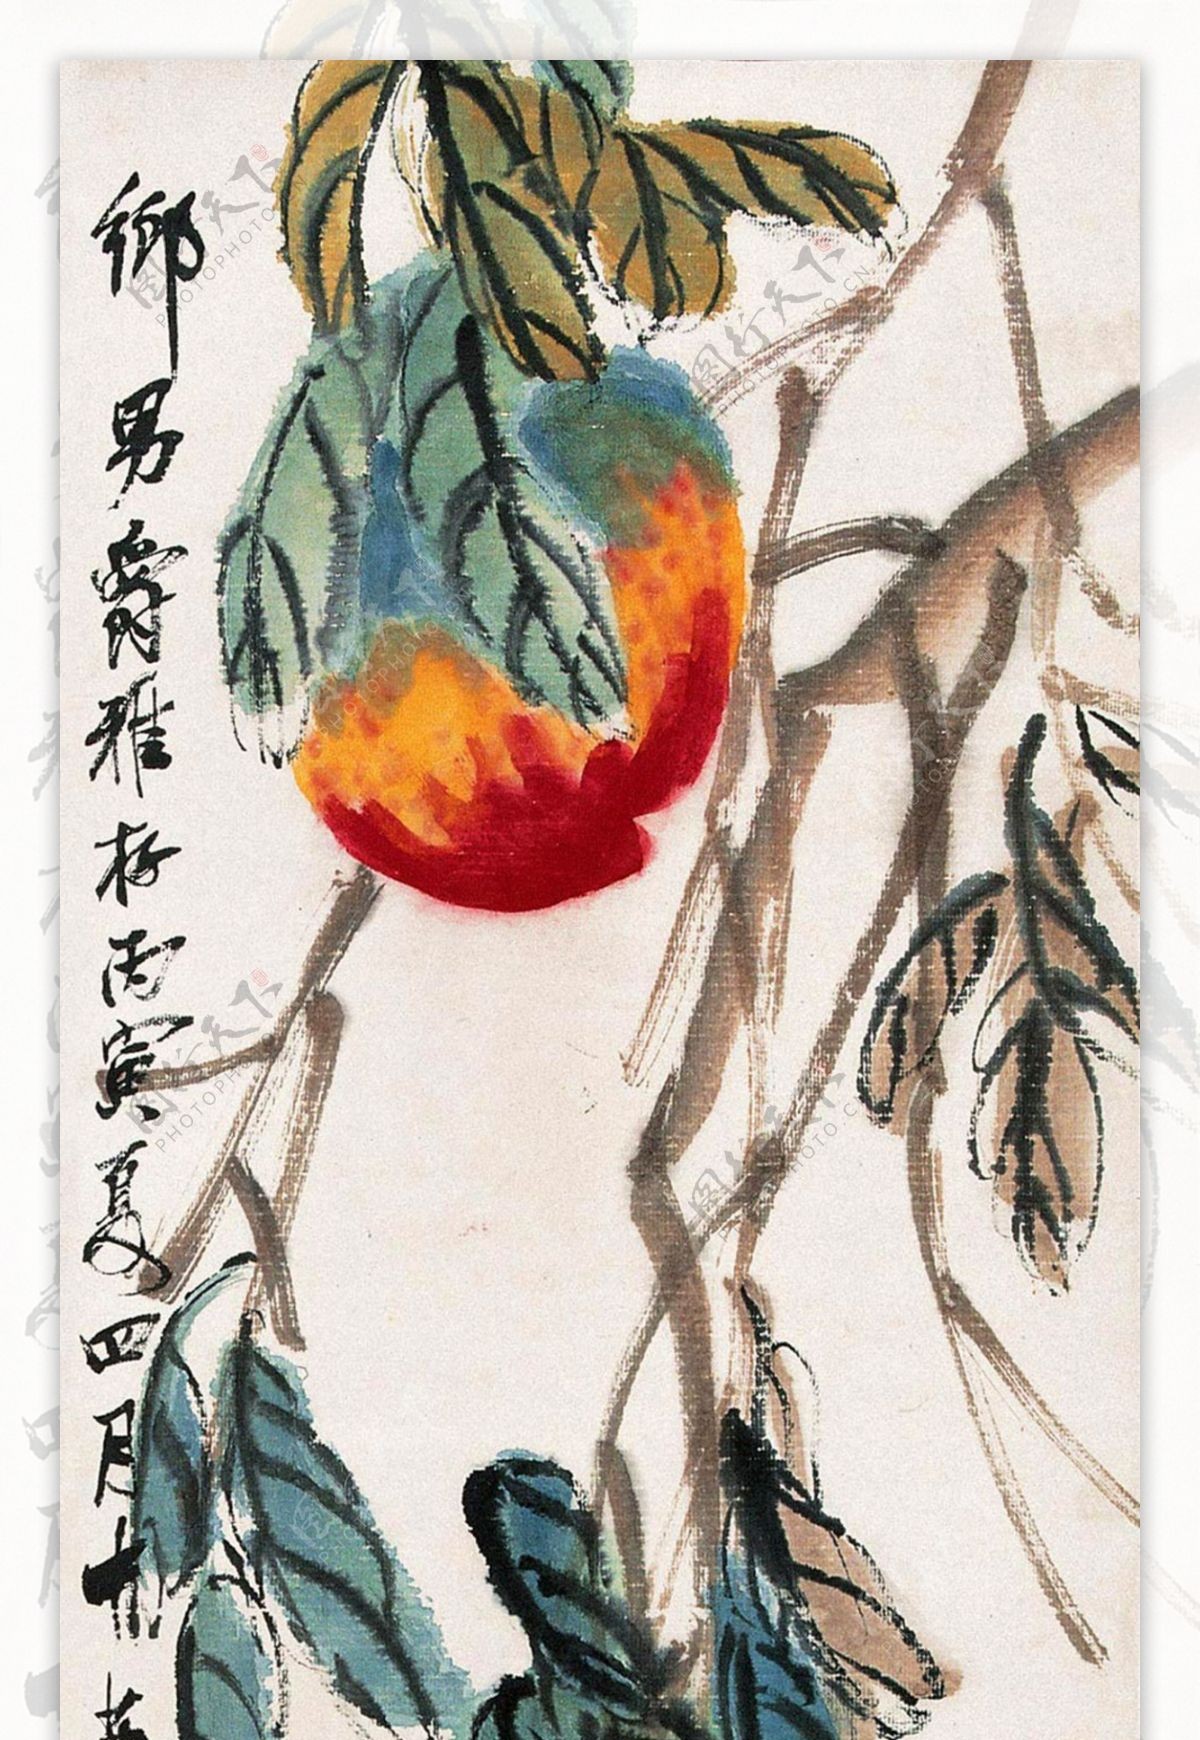 鄉男爵雅括丙寅夏四月
图行天下
PHOTOPHOTO.CN